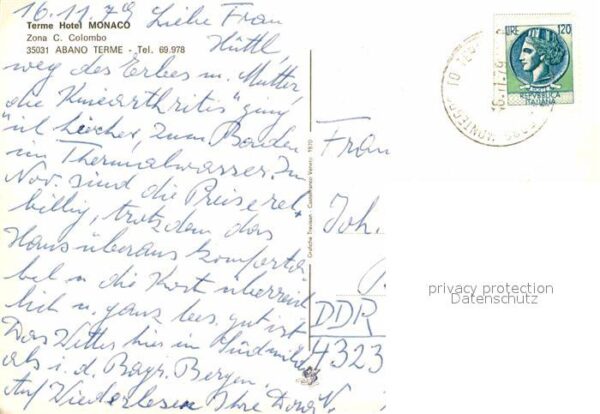 16.11.79 Liebe Frau
Terme Hotel MONACO
Zona C. Colombo
35031 ABANO TERME - Tel. 69.978
Hüttl,
weg des Erbes m. Mutter,
die Kniearthritis" ging
ich zum Baden
im Thermalwasser. Im
Nov. sind die Preise rel.
billig, trotzdem das
Haus überaus komforta
bel u. die Kost überreich
lich u. ganz bes. gut ist
Das Wetter hier im Süd
als i. d. Bayr. Bergen.
Auf Wiedersehen Ihre
Grafiche Trevisan - Castelfranco Veneto - 1970
LIRE 120
REPUBBLICA
ITALIANA
16.11.79
Frau
Joh.
DDR
4323
privacy protection
Datenschutz